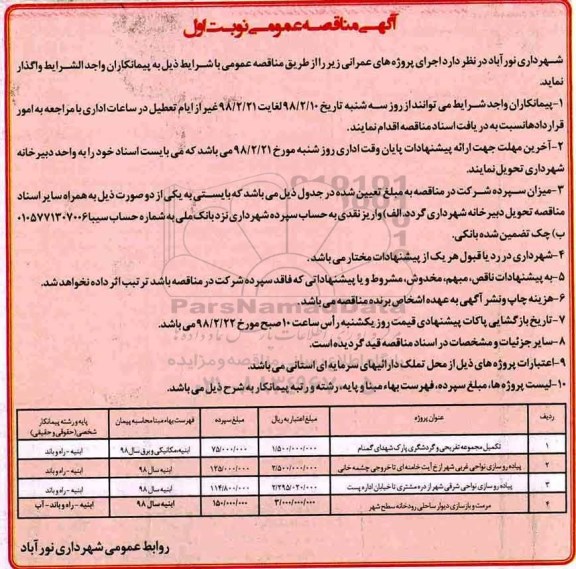 آگهی مناقصه عمومی نوبت اول
شهرداری نورآباد در نظر دارد اجرای پروژه های عمرانی زیر را از طریق مناقصه عمومی با شرایط ذیل به پیمانکاران واجد الشرایط واگذار
نماید.
۱-پیمانکاران واجد شرایط می توانند از روز سه شنبه تاریخ ۹۸/۲/۱۰ لغایت ۹۸/۲/۲۱ غیر از ایام تعطیل در ساعات اداری با مراجعه به امور
قراردادها نسبت به دریافت اسناد مناقصه اقدام نمایند.
۲-آخرین مهلت جهت ارائه پیشنهادات پایان وقت اداری روز شنبه مورخ ۹۸/۲/۲۱ می باشد که می بایست اسناد خود را به واحد دبیرخانه
شهرداری تحویل نمایند.
۳-میزان سپرده شرکت در مناقصه به مبلغ تعیین شده در جدول ذیل می باشد که بایستی به یکی از دو صورت ذیل به همراه سایر اسناد
مناقصه تحویل دبیرخانه شهرداری گردد. الف) واریز نقدی به حساب سپرده شهرداری نزد بانک ملی به شماره حساب سیبا ۰۱۰۵۷۷۱۳۰۷۰۰۶
ب) چک تضمین شده بانکی.
۴-شهرداری در رد یا قبول هر یک از پیشنهادات مختار می باشد.
۵-به پیشنهادات ناقص، مبهم، مخدوش، مشروط و یا پیشنهاداتی که فاقد سپرده شرکت در مناقصه باشد ترتیب اثر داده نخواهد شد.
۶-هزینه چاپ و نشر آگهی به عهده اشخاص برنده مناقصه می باشد.
ParsNamadData
۷-تاریخ بازگشایی پاکات پیشنهادی قیمت روز یکشنبه رأس ساعت ۱۰ صبح مورخ ۹۸/۲/۲۲ می باشد.
۸-سایر جزئیات و مشخصات در اسناد مناقصه قید گردیده است.
۹-اعتبارات پروژه های ذیل از محل تملک دارائیهای سرمایه ای استانی می باشد.
۱۰-لیست پروژه ها، مبلغ سپرده، فهرست بهاء مبنا و پایه، رشته و رتبه پیمانکار به شرح ذیل می باشد.
ردیف عنوان پروژه مبلغ اعتبار به ریال مبلغ سپرده فهرست بهاء مبنا محاسبه پیمان پایه و رشته پیمانکار شخصی(حقوقی و حقیقی)
۱ تکمیل مجموعه تفریحی و گردشگری پارک شهدای گمنام ۱/۵۰۰/۰۰۰/۰۰۰ ۷۵/۰۰۰/۰۰۰ ابنیه مکانیکی و برق سال ۹۸ ابنیه - راه و باند
۲ پیاده رو سازی نواحی غربی شهر از خ آیت خامنه ای تا خروجی چشمه خانی ۲/۵۰۰/۰۰۰/۰۰۰ ۱۲۵/۰۰۰/۰۰۰ ابنیه سال ۹۸ ابنیه - راه و باند
۳ پیاده رو سازی نواحی شرقی شهر از دره مشتری تا خیابان اداره پست ۲/۲۹۵/۰۲۰/۰۰۰ ۱۱۴/۸۰۰/۰۰۰ ابنیه سال ۹۸ ابنیه - راه و باند
۴ مرمت و بازسازی دیوار ساحلی رودخانه سطح شهر ۳/۰۰۰/۰۰۰/۰۰۰ ۱۵۰/۰۰۰/۰۰۰ ابنیه سال ۹۸ ابنیه - راه و باند - آب
روابط عمومی شهرداری نورآباد